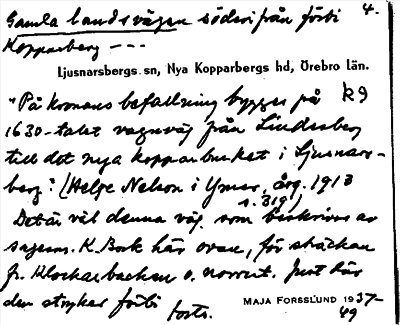 Gamla landsvägen söderifrån förbi 4.
Kopparberg ---
Ljusnarsbergs sn, Nya Kopparbergs hd, Örebro län.
"På kronans befallning bygges på k9
1630-talet vagnsväg från Lindesberg
till det nya kopparbruket i Ljusnars-
berg." (Helge Nelson i Ymer, årg. 1913
s. 319)
Det är väl denna väg som beskrives av
sagesm. K. Bark här ovan, för sträckan
fr. Klockarbacken o. norrut. Just där
den stryker förbi forts.
MAJA FORSSLUND 1937-
49